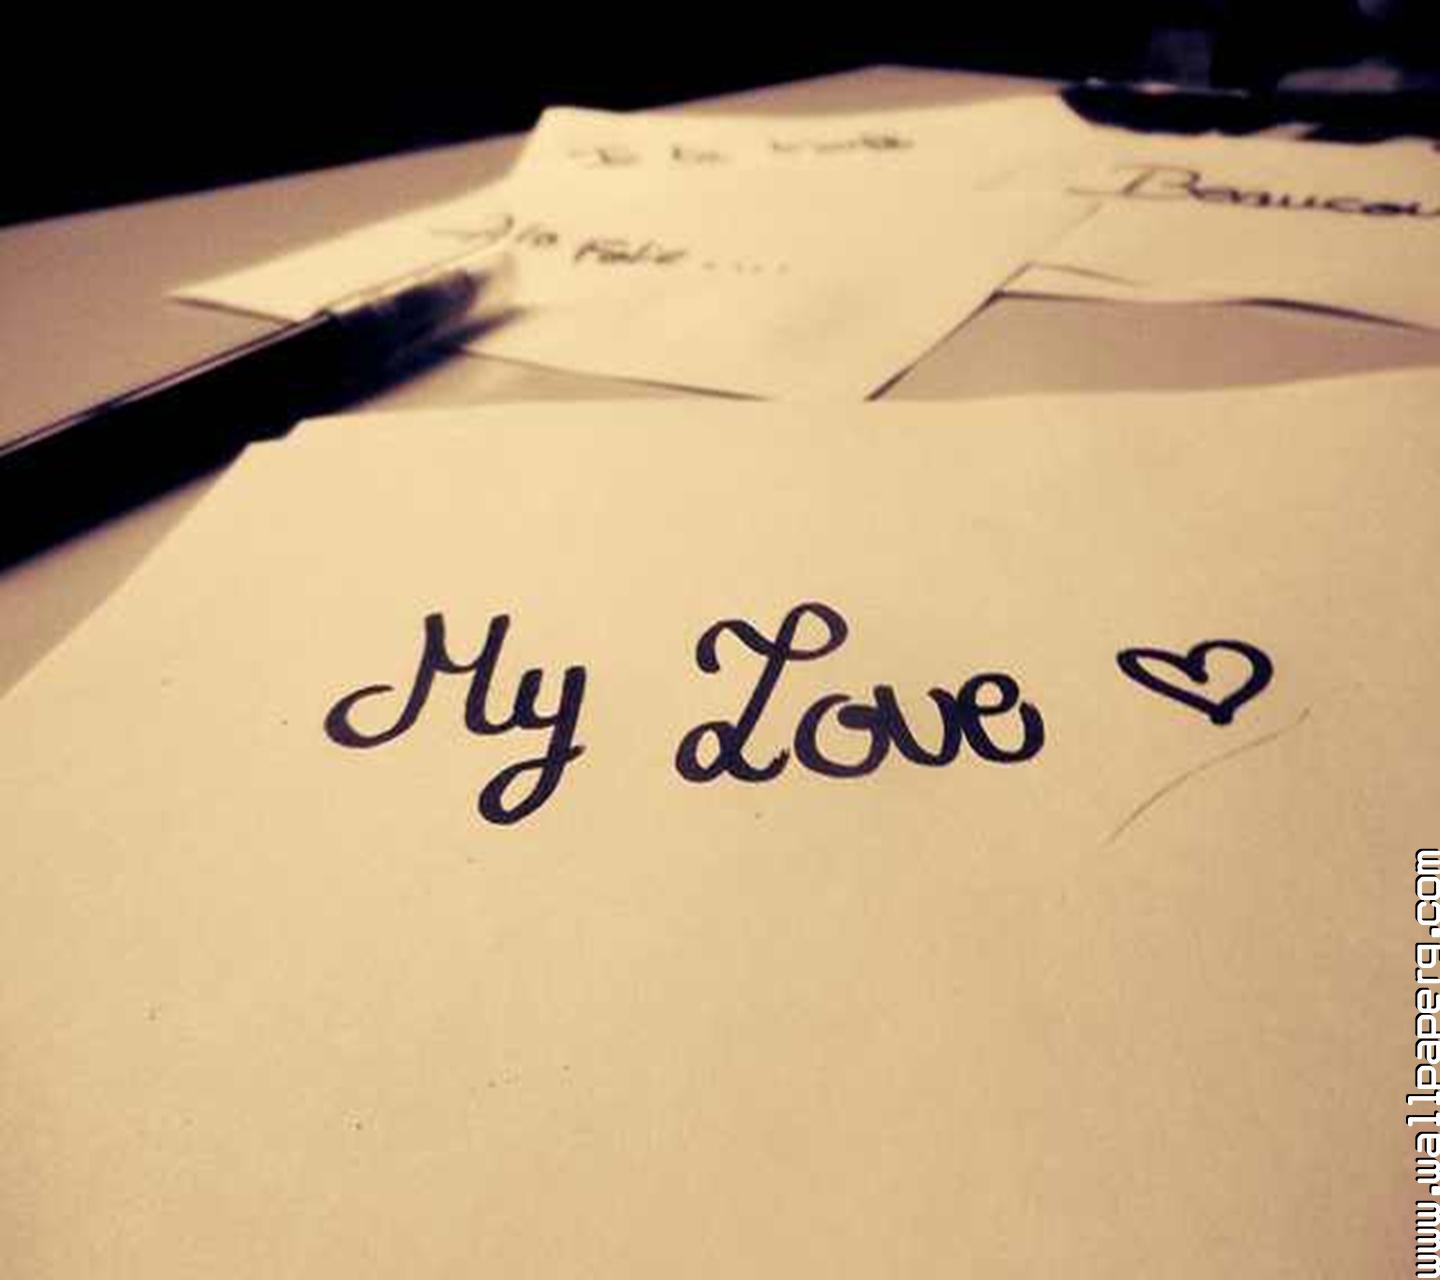 à la Folie.....
Beaucou
My Love ♡
www.wallpaperg.com